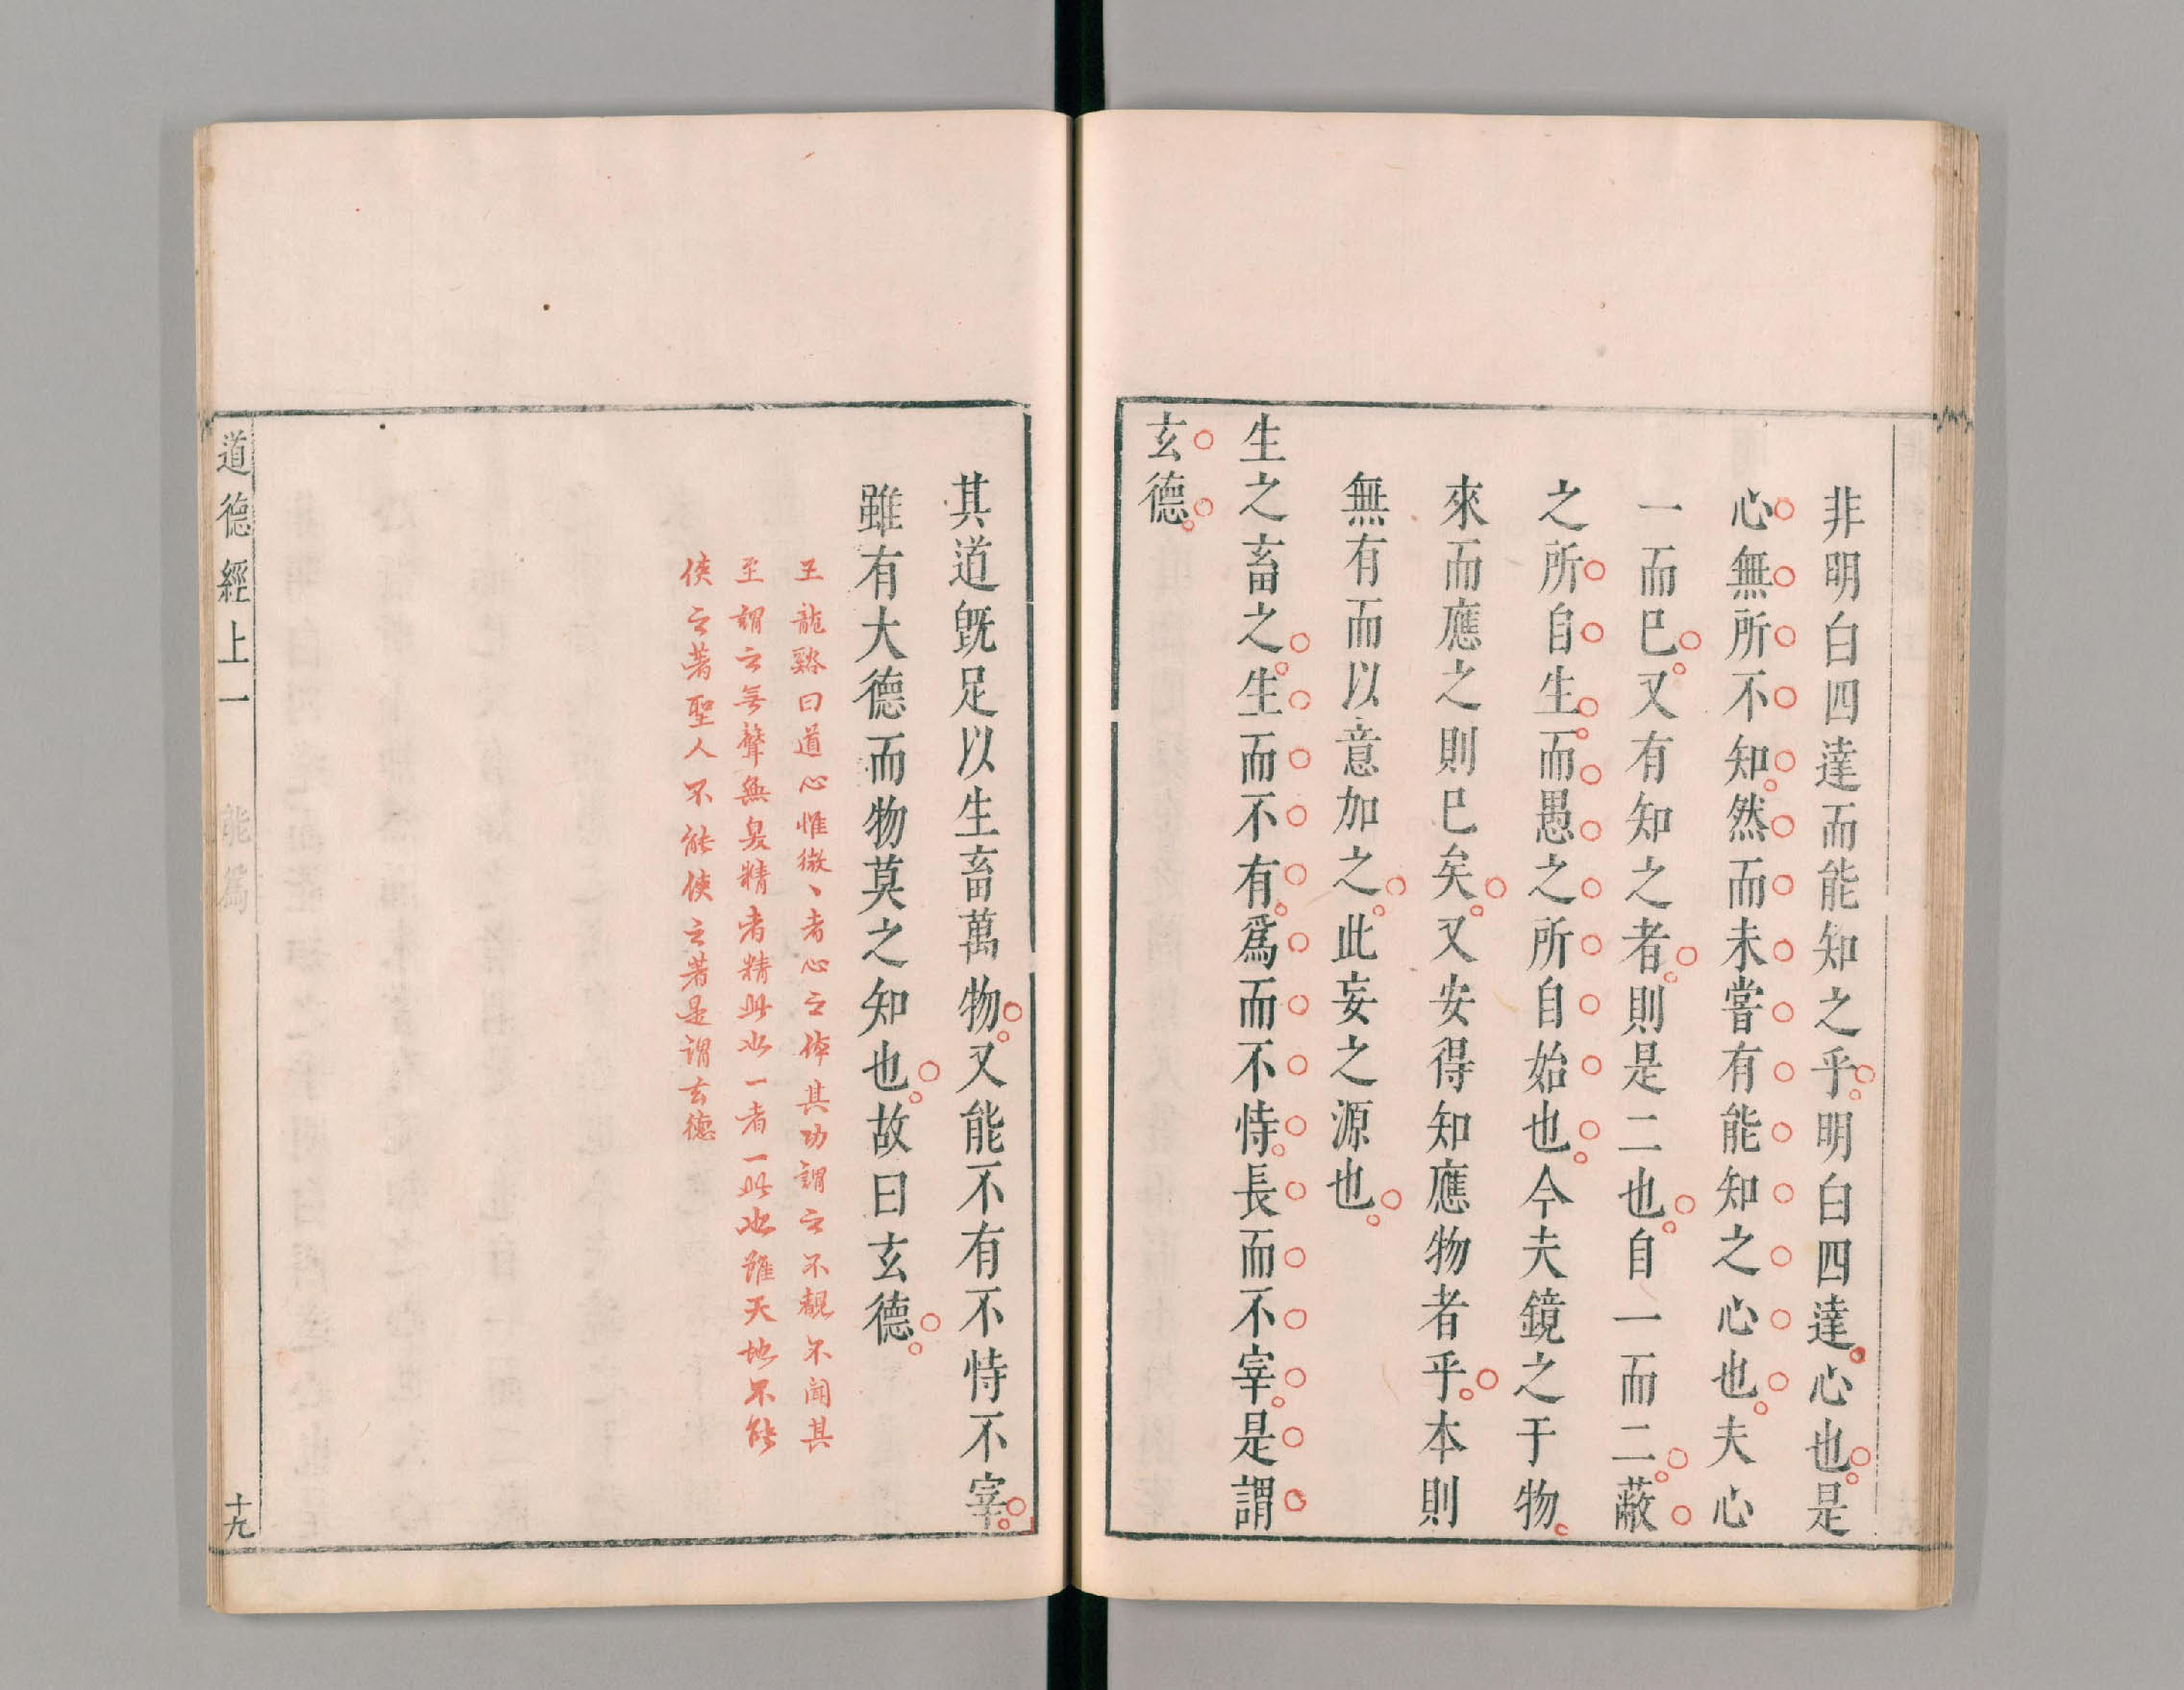 非明白四達而能知之乎明白四達心也是
心無所不知然而未嘗有能知之心也夫心
一而已又有知之者則是二也自一而二蔽
之所自生而愚之所自始也今夫鏡之于物
來而應之則已矣又安得知應物者乎本則
無有而以意加之此妄之源也
生之畜之生而不有爲而不恃長而不宰是謂
玄德
其道旣足以生畜萬物又能不有不恃不宰
雖有大德而物莫之知也故曰玄德
王龍谿曰道心惟微、者心之体其功謂之不覩不聞其
至謂之無聲無臭精者精此也一者一此也雖天地不能
使之著聖人不能使之著是謂玄德
道德經上一 能爲 十九